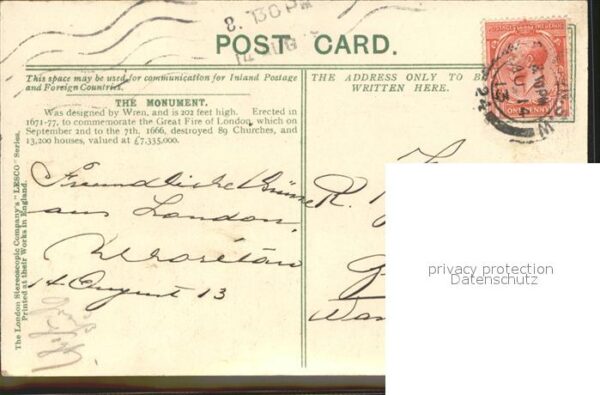 8. 130 PM
14 AUG
POST CARD.
This space may be used for communication for Inland Postage
and Foreign Countries.
THE MONUMENT.
Was designed by Wren, and is 202 feet high. Erected in
1671-77, to commemorate the Great Fire of London, which on
September 2nd to the 7th, 1666, destroyed 89 Churches, and
13,200 houses, valued at £7,335,000.
Freundliche Grüsse
aus London,
14 August 13
The London Stereoscopic Company's "LESCO" Series.
Printed at their Works in England.
THE ADDRESS ONLY TO BE
WRITTEN HERE.
R.
ONE PENNY
privacy protection
Datenschutz